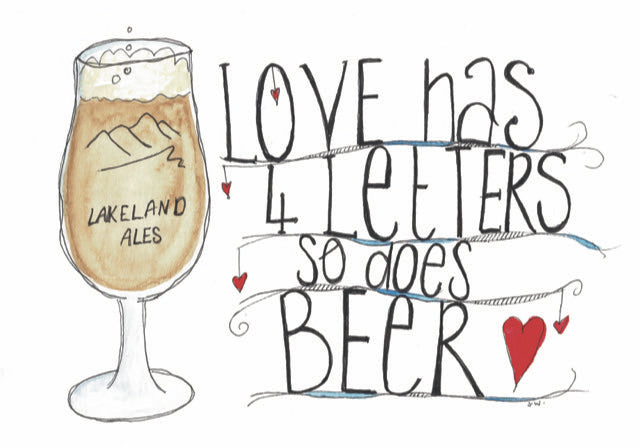 LAKELAND
ALES
LOVE has
4 LeTTERS
so does
BEeR